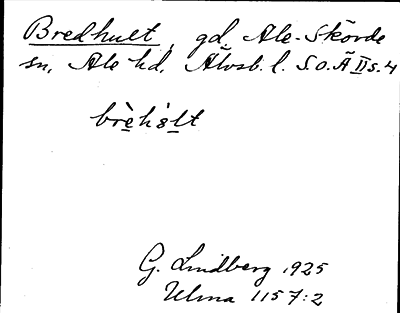 Bredhult, gd, Ale-Skövde
sn, Ale hd, Älvsb. l. S.O.Ä II s. 4
brèhʹɵlt
G. Lindberg 1925
Ulma 1157:2